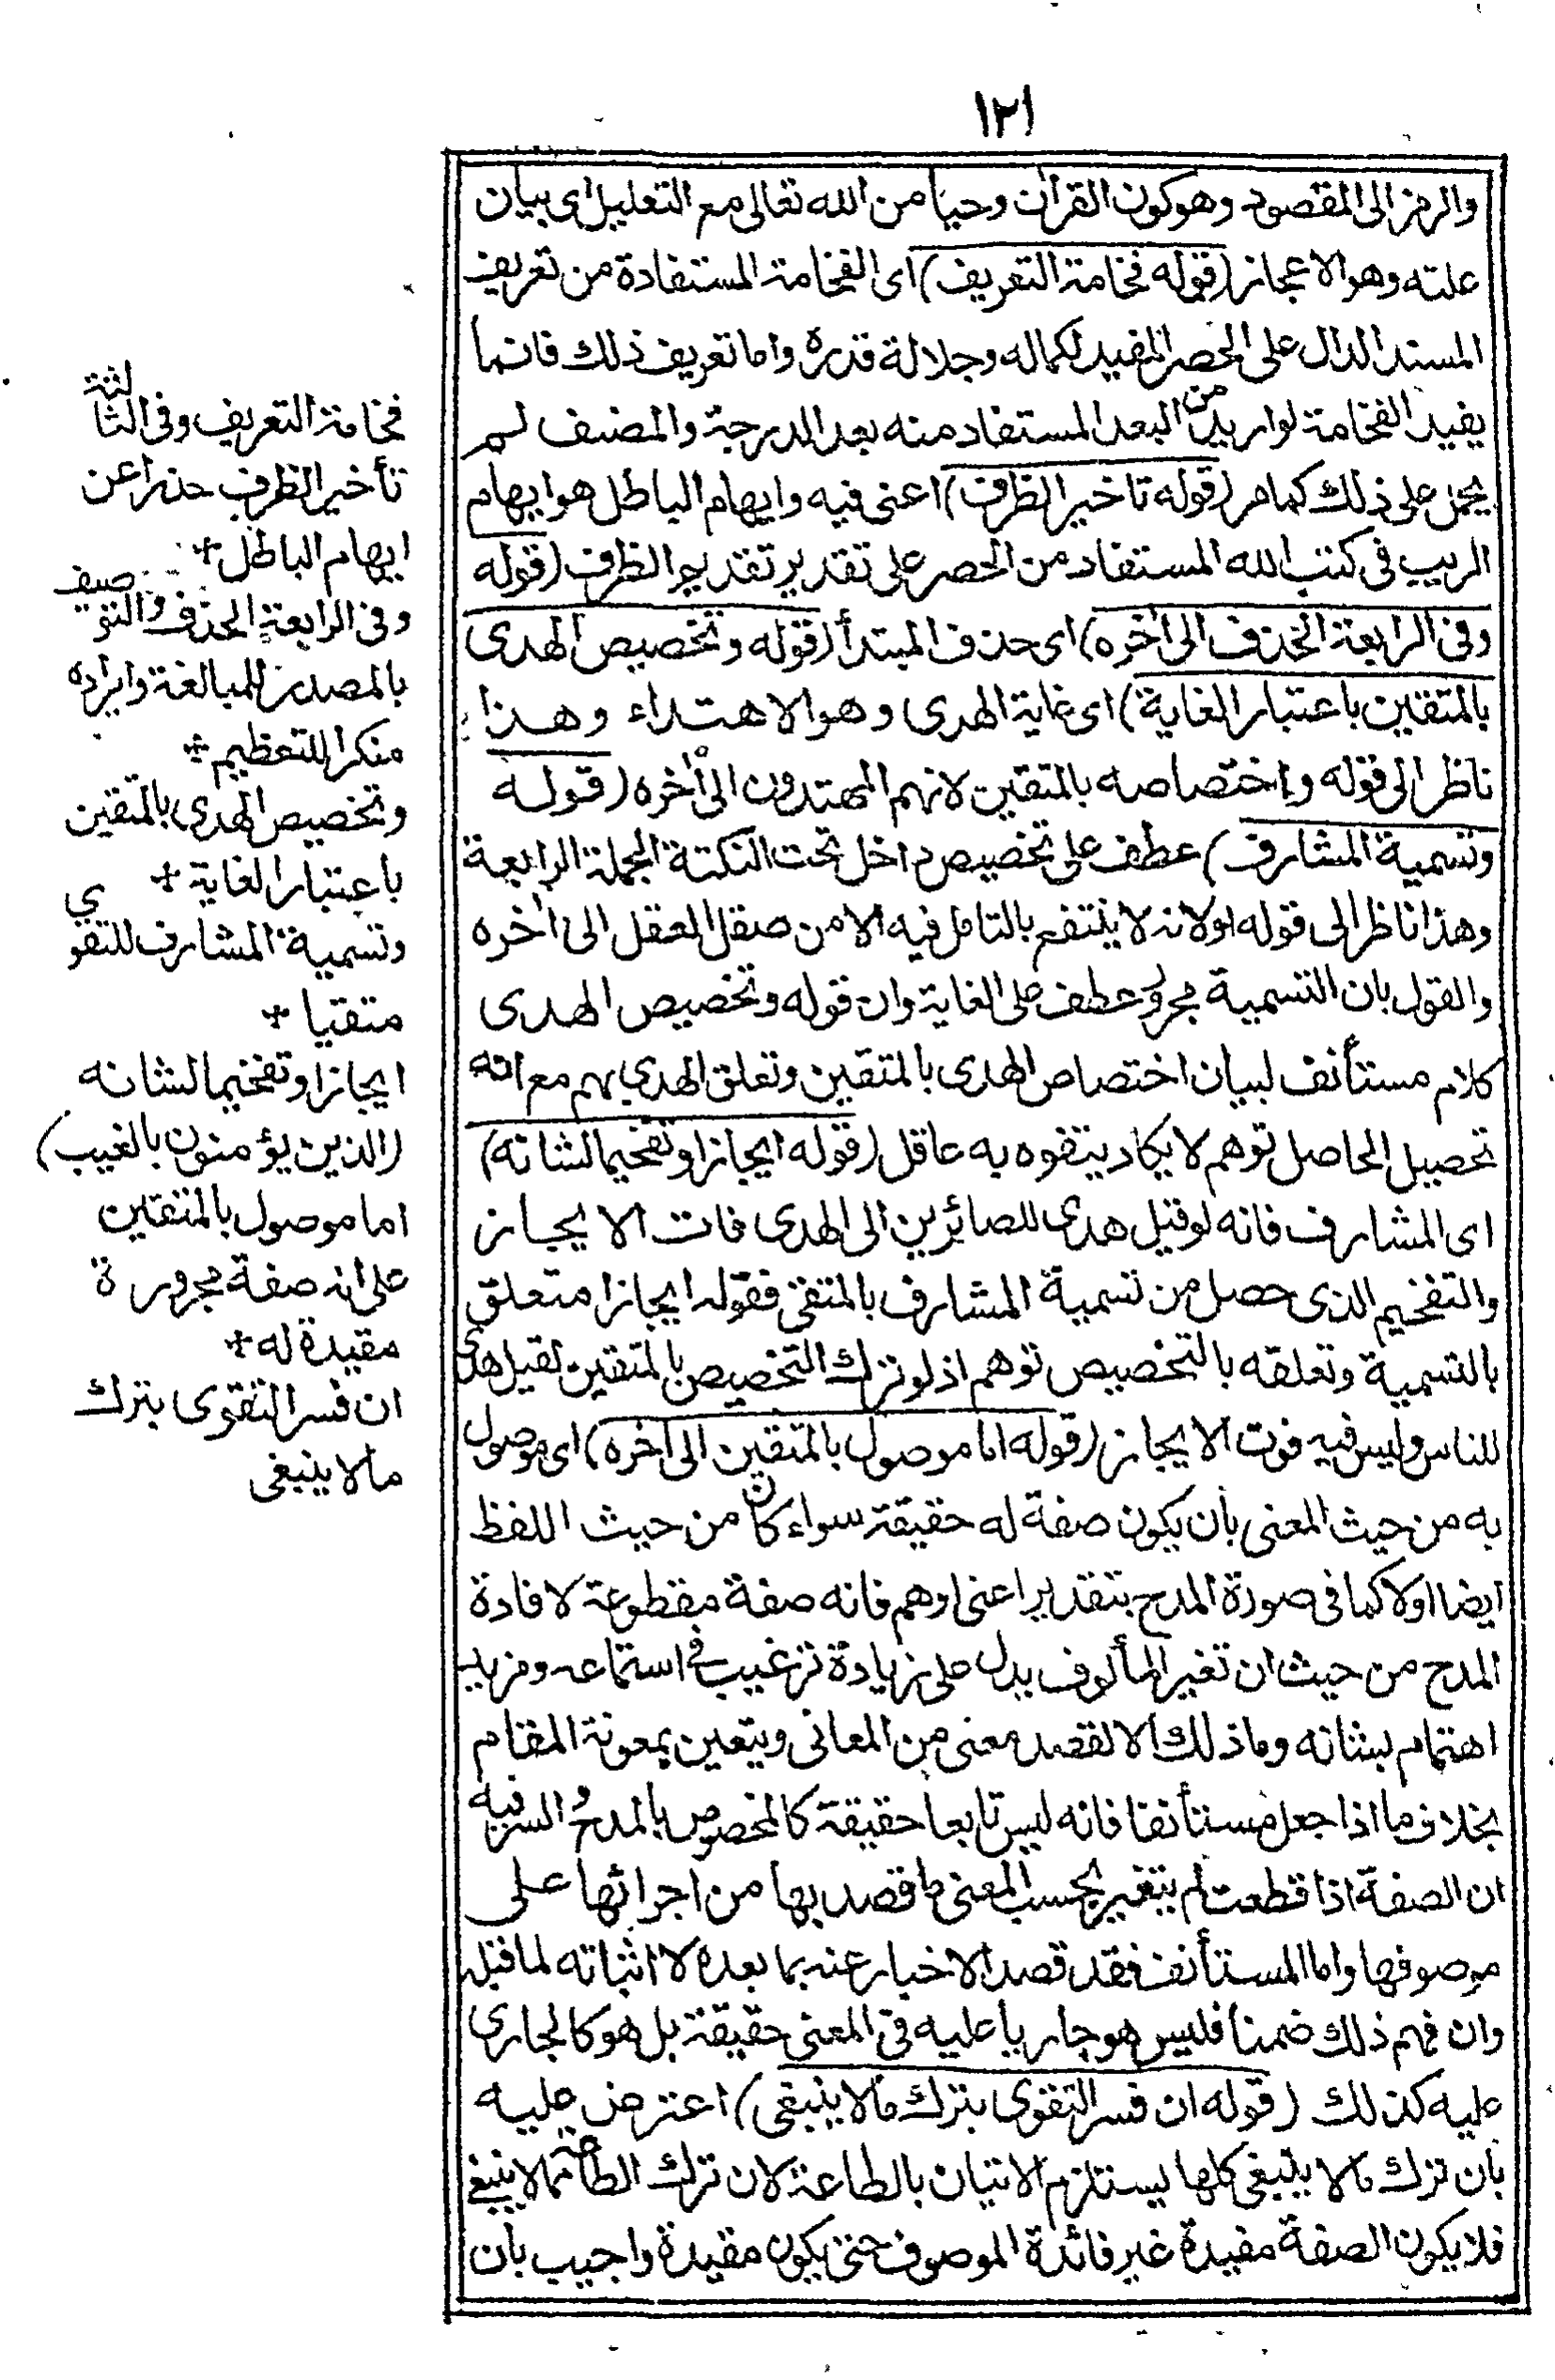 ١٢١
والرمز الى المقصود وهو كون القرآن وحيا من الله تعالى مع التعليل اى بيان
علته وهو الاعجاز (قوله فخامة التعريف) اى الفخامة المستفادة من تعريف
المسند الدال على الحصر المفيد لكماله وجلالة قدره واما تعريف ذلك فانما
يفيد الفخامة لو اريد من البعد المستفاد منه بعد الدرجة والمصنف لم
يحمل على ذلك كما مر (قوله تاخير الظرف) اعنى فيه وايهام الباطل هو ايهام
الريب فى كتب الله المستفاد من الحصر على تقدير تقديم الظرف (قوله
وفى الرابعة الحذف الى اخره) اى حذف المبتدأ (قوله وتخصيص الهدى
بالمتقين باعتبار الغاية) اى غاية الهدى وهو الاهتداء وهذا
ناظر الى قوله واختصاصه بالمتقين لانهم المهتدون الى أخره (قوله
وتسمية المشارف) عطف على تخصيص داخل تحت النكتة الجملة الرابعة
وهذا ناظر الى قوله اولانه لا ينتفع بالتامل فيه الا من صقل العقل الى اخره
والقول بان التسمية مجرور عطف على الغاية وان قوله وتخصيص الهدى
كلام مستأنف لبيان اختصاص الهدى بالمتقين وتعلق الهدى بهم مع انه
تحصيل الحاصل توهم لا يكاد يتفوه به عاقل (قوله ايجازا وتفخيما لشانه)
اى المشارف فانه لو قيل هدى للصائرين الى الهدى فات الايجاز
والتفخيم الذى حصل من تسمية المشارف بالمتقى فقوله ايجازا متعلق
بالتسمية وتعلقه بالتخصيص توهم اذ لو ترك التخصيص بالمتقين لقيل هدى
للناس وليس فيه فوت الايجاز (قوله اما موصول بالمتقين الى اخره) اى موصول
به من حيث المعنى بان يكون صفة له حقيقة سواء كان من حيث اللفظ
ايضا اولا كما فى صورة المدح بتقدير اعنى او هم فانه صفة مقطوعة لافادة
المدح من حيث ان تغير المألوف يدل على زيادة ترغيب فى استماعه ومزيد
اهتمام بشانه وما ذلك الا لقصد معنى من المعانى ويتعين بمعونة المقام
بخلاف ما اذا جعل مستأنفا فانه ليس تابعا حقيقة كالمخصوص بالمدح والسر فيه
ان الصفة اذا قطعت لم يتغير بحسب المعنى ما قصد بها من اجرائها على
موصوفها واما المستأنف فقد قصد الاخبار عنه بما بعده لا اثباته لما قبله
وان فهم ذلك ضمنا فليس هو جاريا عليه فى المعنى حقيقة بل هو كالجارى
عليه كذلك (قوله ان فسر التقوى بترك مالا ينبغى) اعترض عليه
بان ترك مالا ينبغى كلها يستلزم الاتيان بالطاعة لان ترك الطاعة مما لا ينبغى
فلا يكون الصفة مفيدة غير فائدة الموصوف حتى يكون مقيدة واجيب بان
فخامة التعريف وفى الثالثة
تأخير الظرف حذرا عن
ايهام الباطل +
وفى الرابعة الحذف والتوصيف
بالمصدر للمبالغة وايراده
منكرا للتعظيم +
وتخصيص الهدى بالمتقين
باعتبار الغاية +
وتسمية المشارف للتقوي
متقيا +
ايجازا وتفخيما لشانه
(الذين يؤمنون بالغيب)
اما موصول بالمتقين
على انه صفة مجرورة
مقيدة له +
ان فسر التقوى بترك
مالا ينبغى